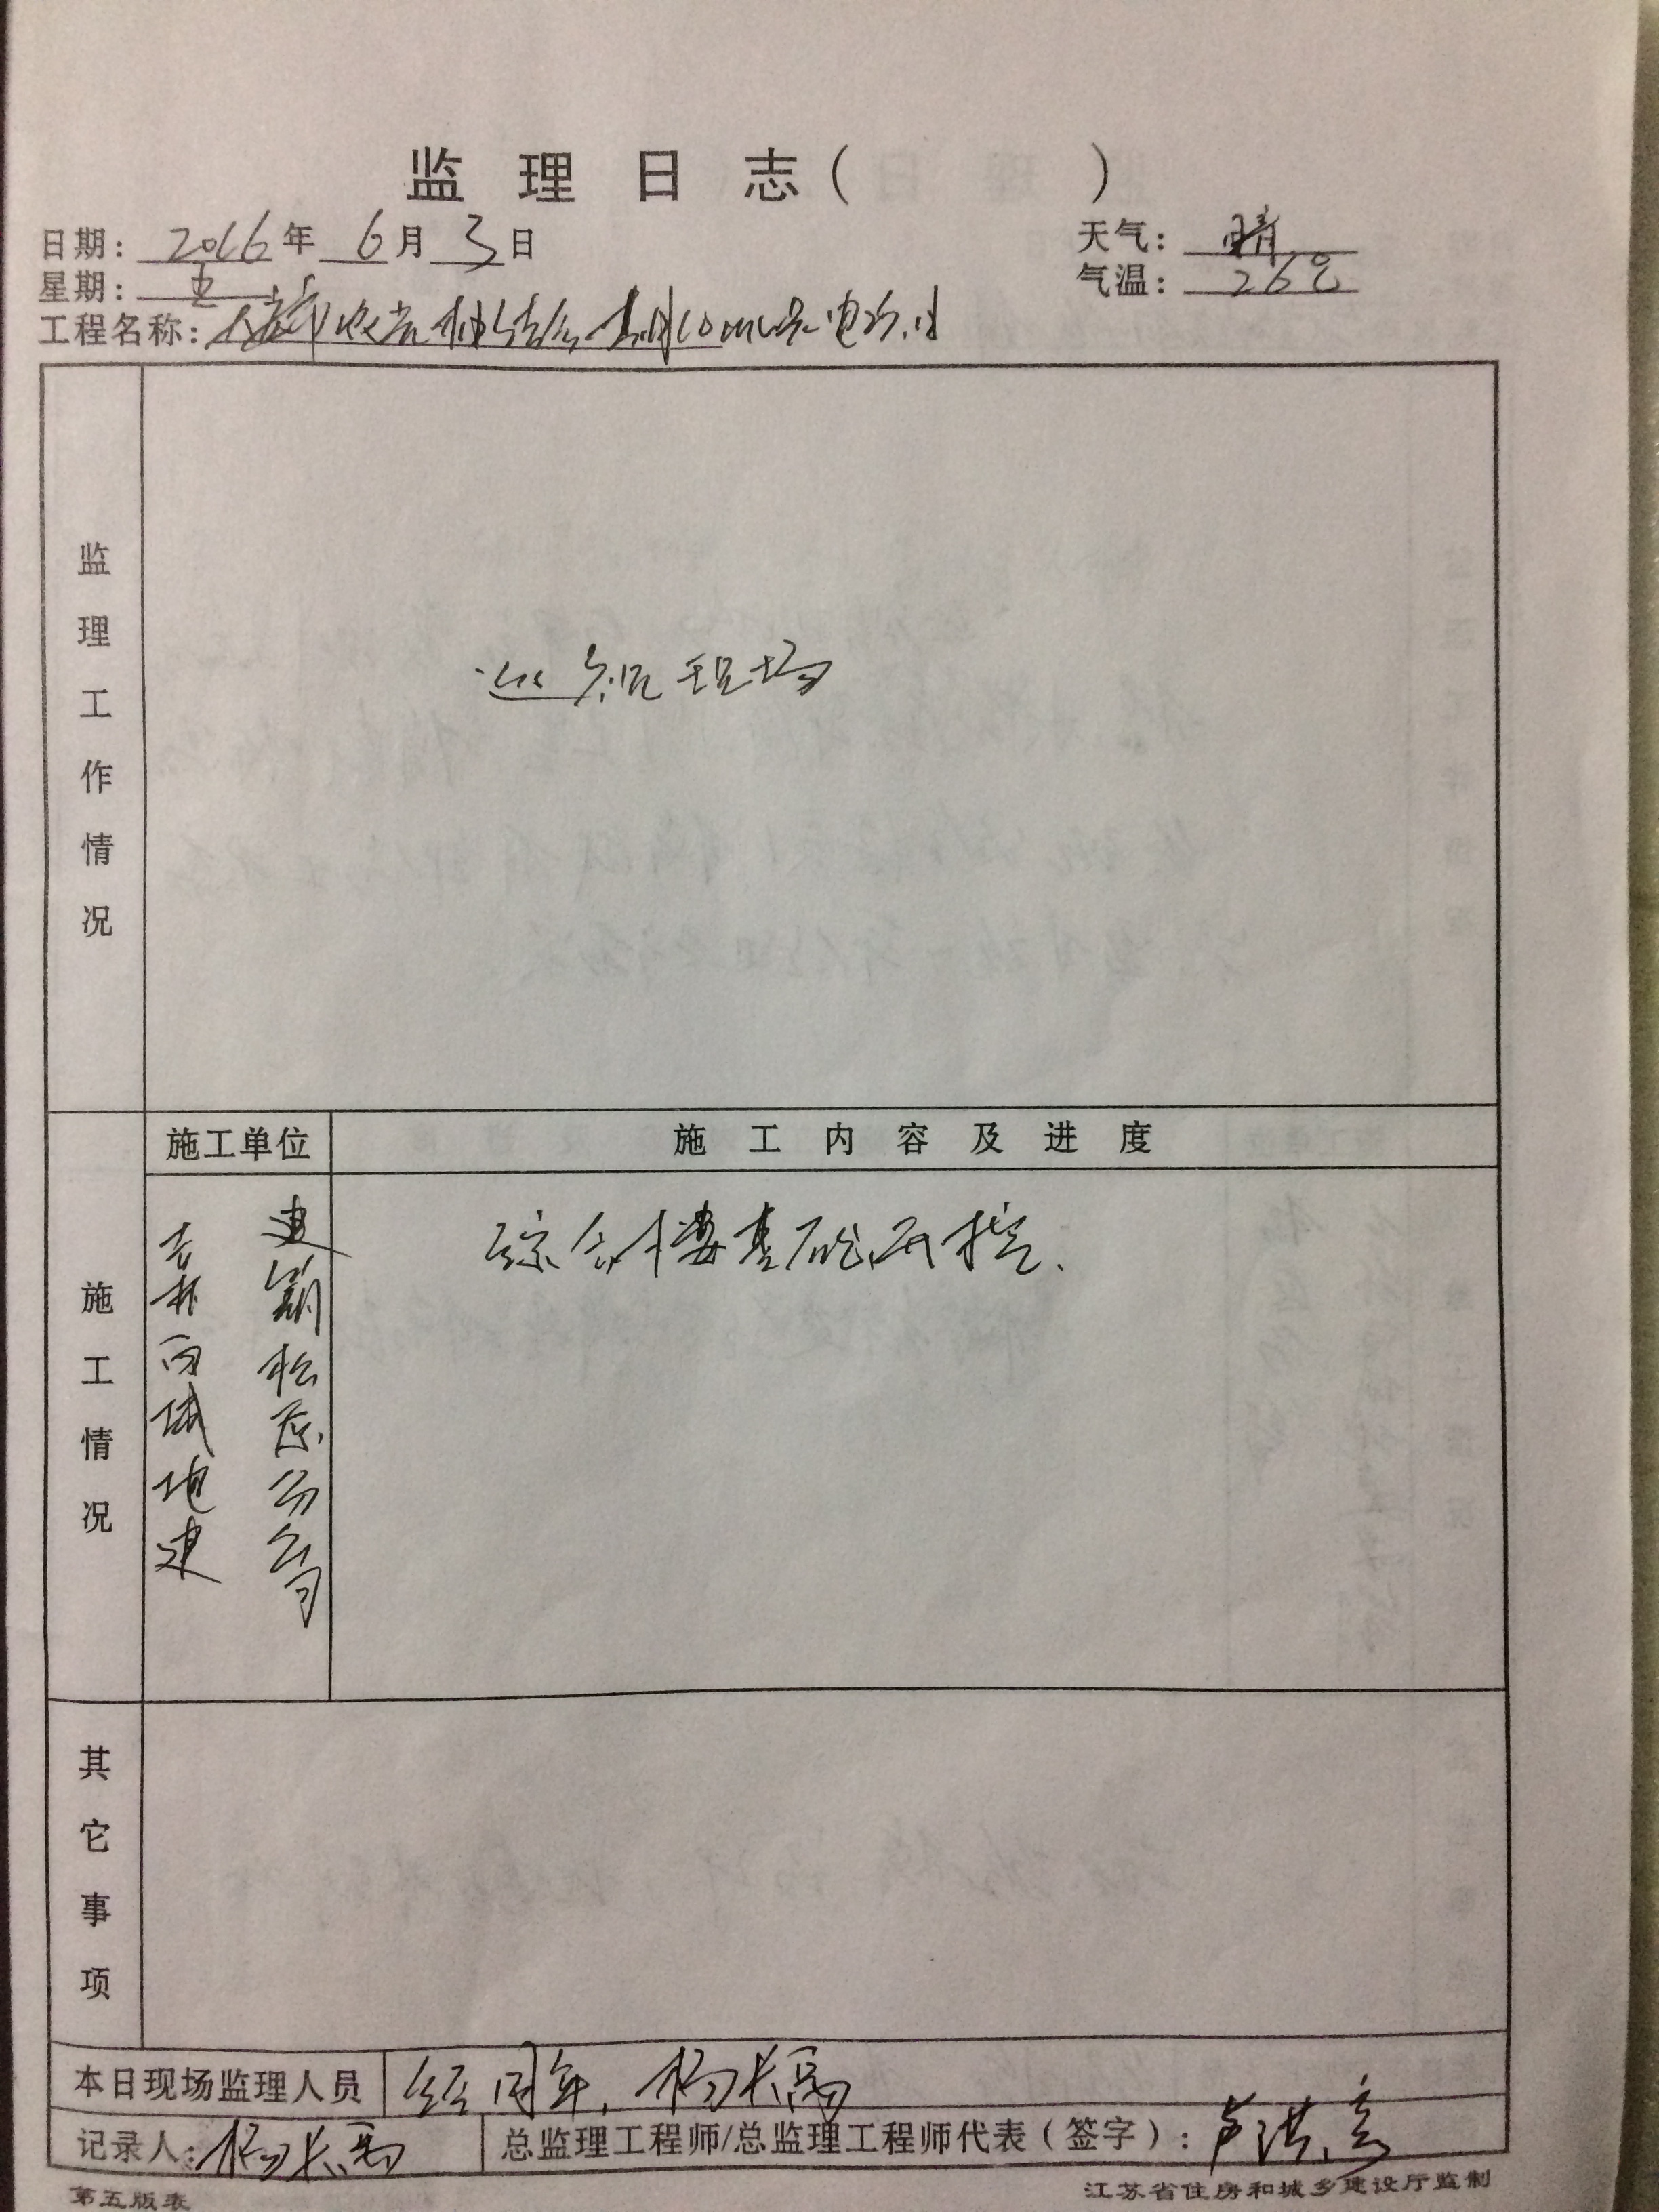 监理日志（ ）
日期：2016年6月3日 天气：晴
星期：五 气温：26℃
工程名称：
监理工作情况
巡视现场
施工单位 施工内容及进度
施工情况
吉林百城地建
建筑松原分公司
综合楼基础开挖.
其它事项
本日现场监理人员 经国年, 杨长禹
记录人：杨长禹 总监理工程师/总监理工程师代表（签字）：芦洪彦
第五版表 江苏省住房和城乡建设厅监制